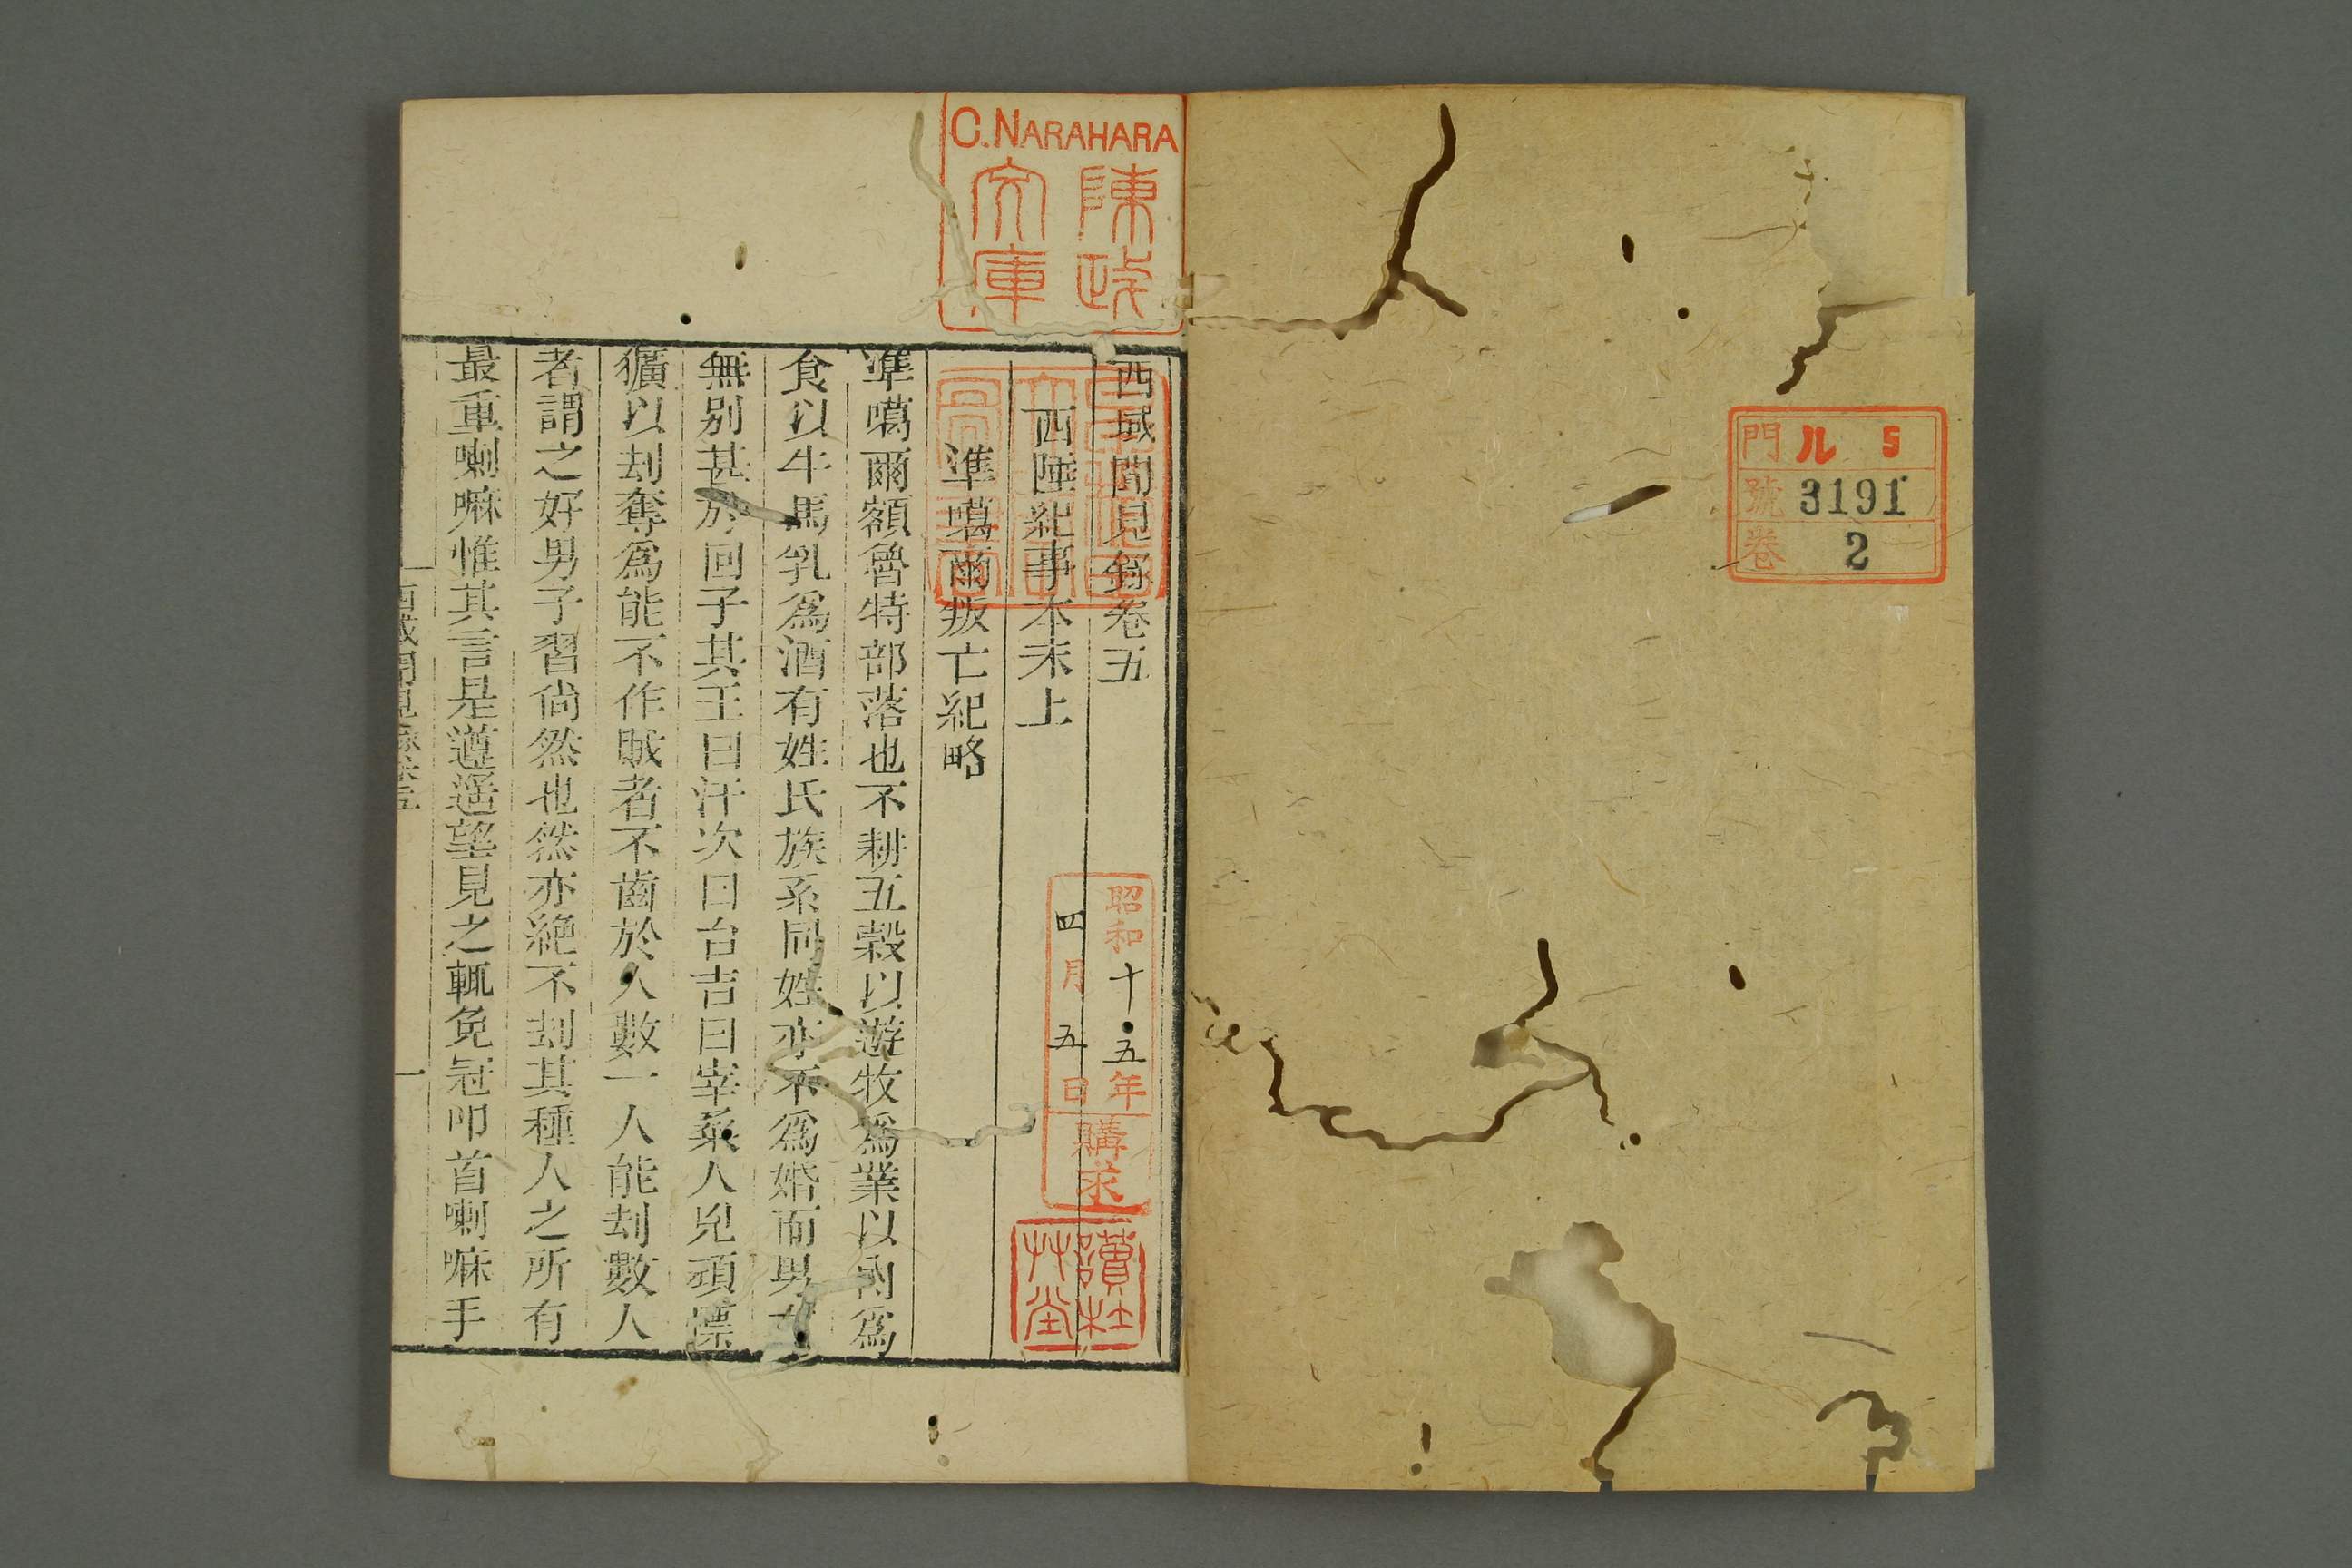 門 ル 5
號 3191
卷 2
C.NARAHARA
陳政
文庫
西域聞見錄卷五
西陲紀事本末上
準噶爾叛亡紀略
準噶爾額魯特部落也不耕五穀以遊牧爲業以肉爲
食以牛馬乳爲酒有姓氏族系同姓亦不爲婚而男女
無別甚於回子其王曰汗次曰台吉曰宰桑人兇頑慓
獷以刦奪爲能不作賊者不齒於人數一人能刦數人
者謂之好男子習尙然也然亦絶不刦其種人之所有
最重喇嘛惟其言是遵遥望見之輒免冠叩首喇嘛手
西域聞見錄卷五
一
昭和十五年
四月五日
購求
讀杜
艸堂